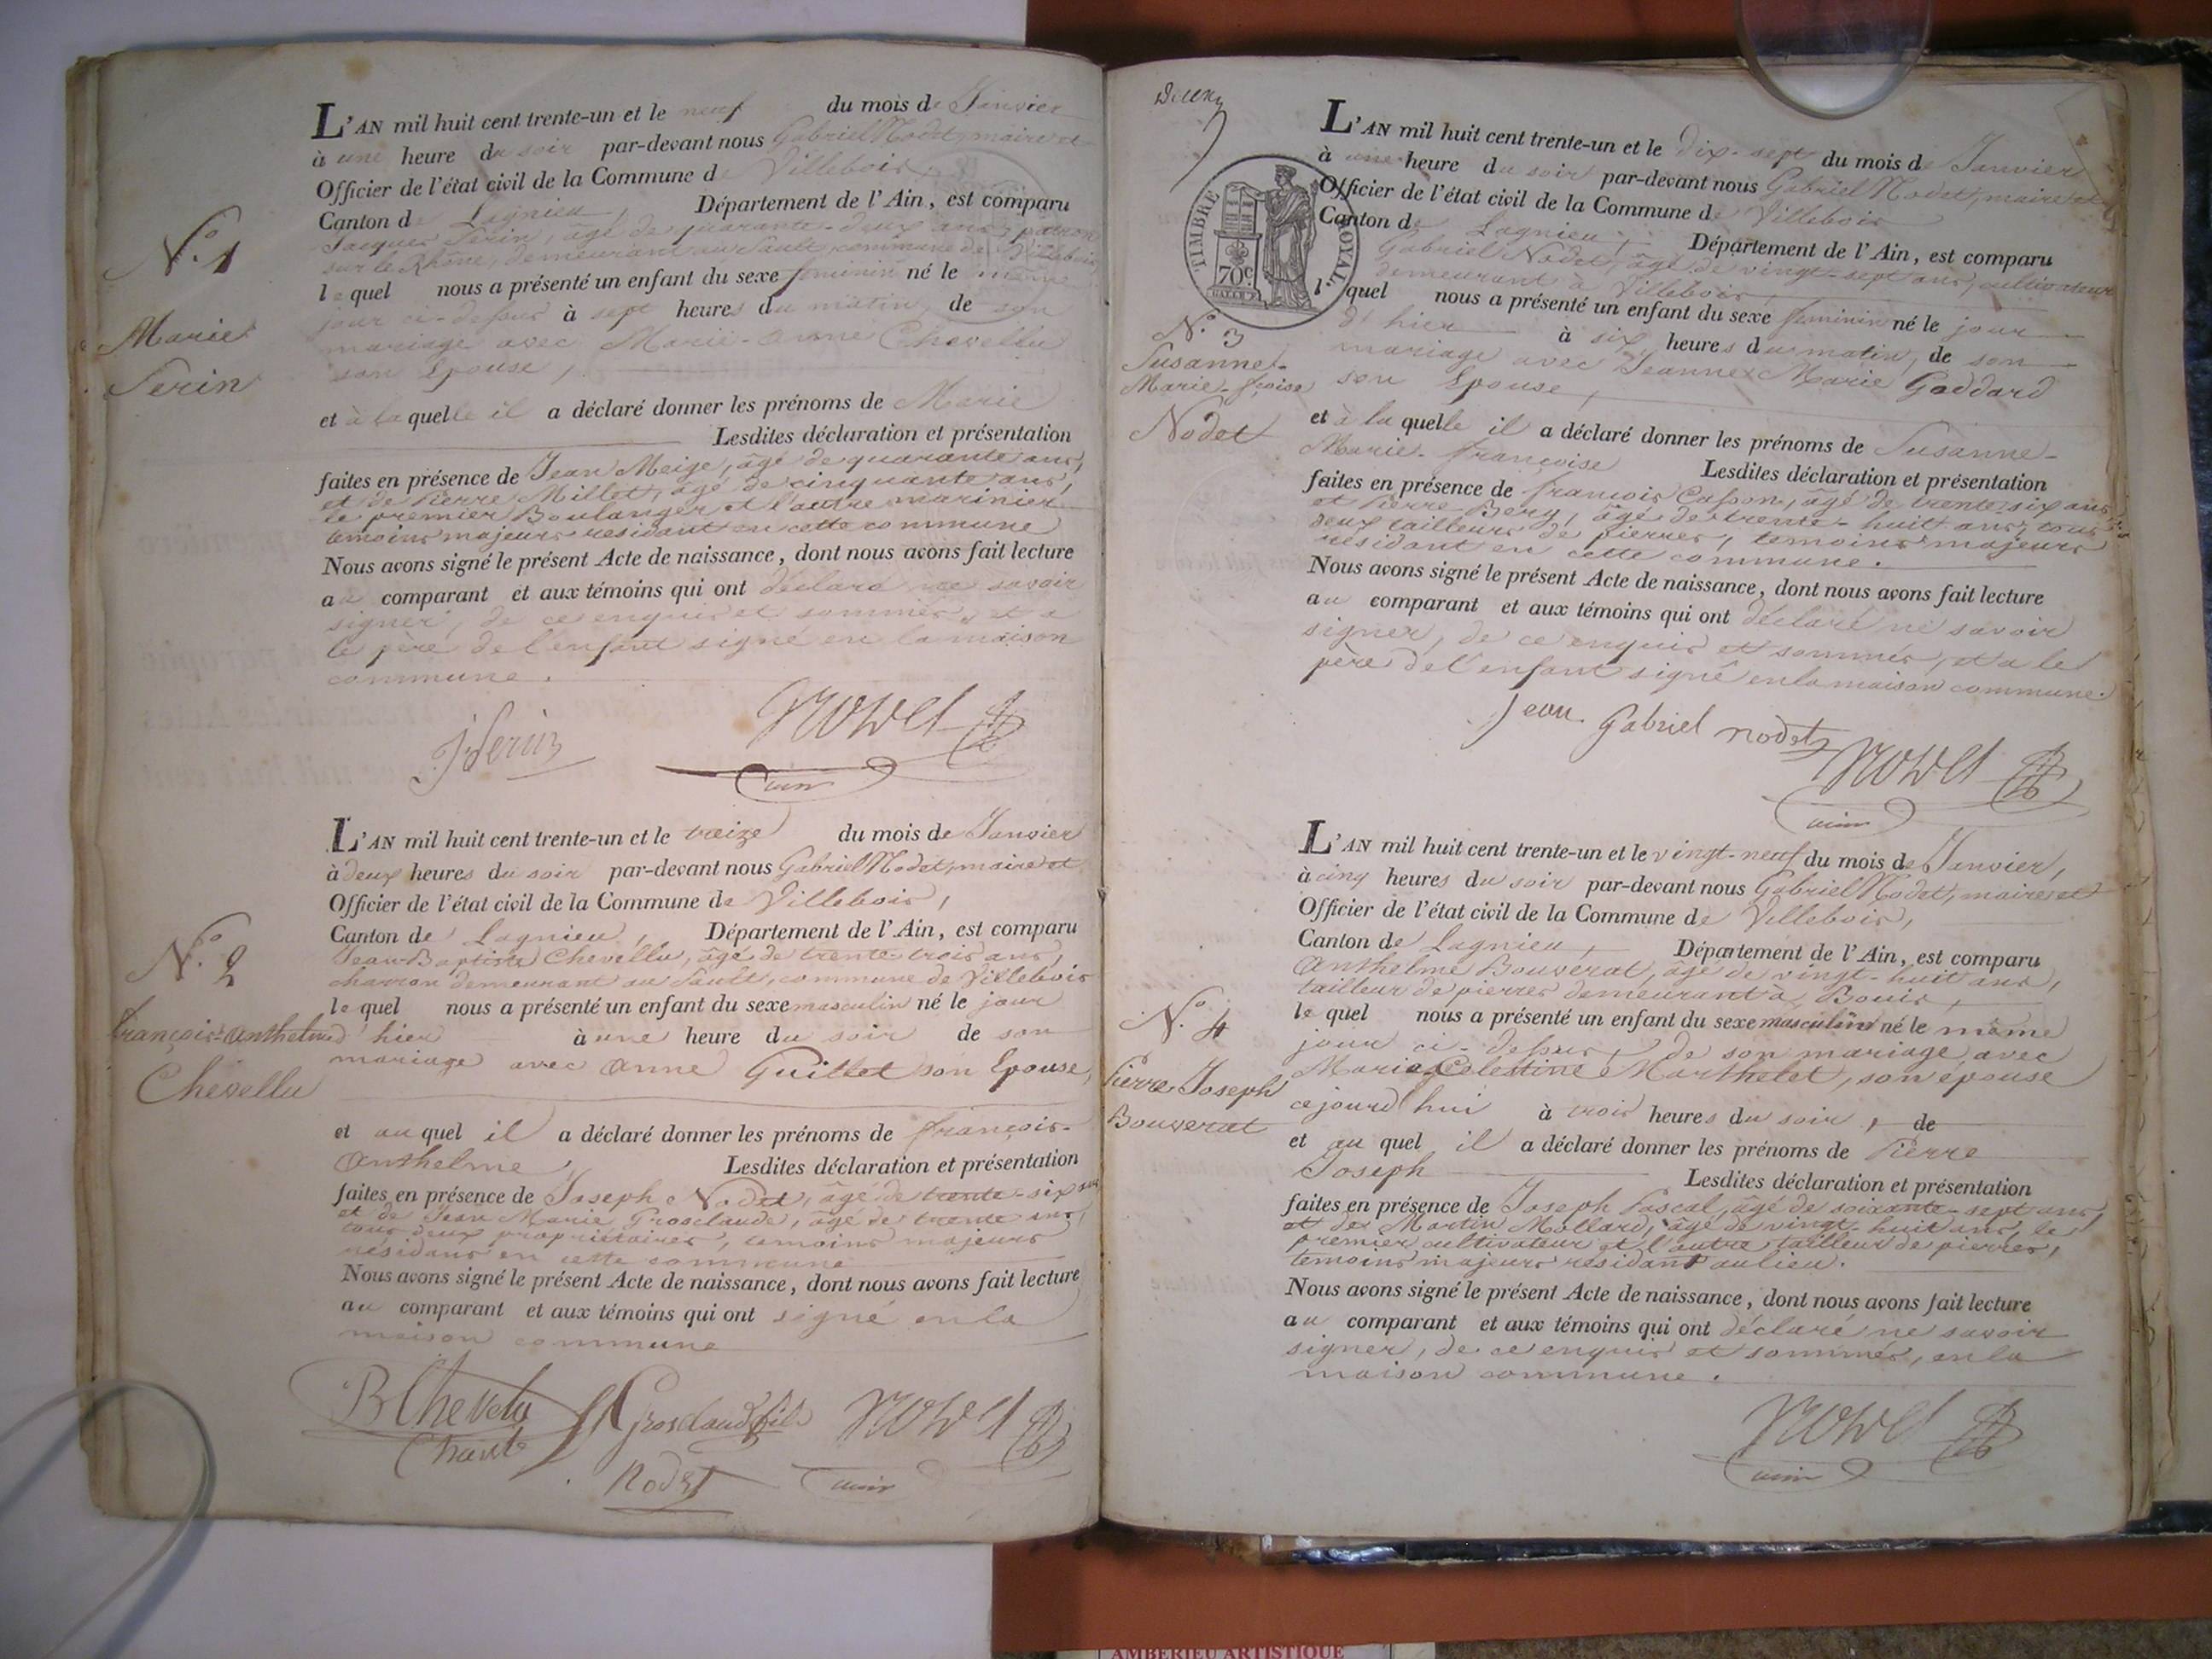 N.° 1
Marie
Serin
L'AN mil huit cent trente-un et le neuf du mois de Janvier
à une heure du soir par-devant nous Gabriel Nodet, maire et
Officier de l'état civil de la Commune de Villebois,
Canton de Lagnieu, Département de l'Ain, est comparu
Jacques Serin, âgé de quarante-deux ans, patron
sur le Rhône, demeurant au Sault, commune de Villebois
le quel nous a présenté un enfant du sexe féminin né le même
jour ci-dessus à sept heures du matin, de son
mariage avec Marie-anne Chevellu
son Epouse,
et à la quelle il a déclaré donner les prénoms de Marie
Lesdites déclaration et présentation
faites en présence de Jean Meige, âgé de quarante ans,
et de Pierre Millet, âgé de cinquante ans,
le premier Boulanger et l'autre marinier
temoins majeurs residant en cette commune
Nous avons signé le présent Acte de naissance, dont nous avons fait lecture
au comparant et aux témoins qui ont déclaré ne savoir
signer, de ce enquis et sommés, et a
le père de l'enfant signé en la maison
commune.
J Serin
Nodet
maire
N.° 2
françois-anthelme
Chevellu
L'AN mil huit cent trente-un et le treize du mois de Janvier
à deux heures du soir par-devant nous Gabriel Nodet, maire et
Officier de l'état civil de la Commune de Villebois,
Canton de Lagnieu, Département de l'Ain, est comparu
Jean-Baptiste Chevellu, âgé de trente-trois ans,
charron demeurant au Sault, commune de Villebois
le quel nous a présenté un enfant du sexe masculin né le jour
d'hier à une heure du soir de son
mariage avec Anne Guillet son Epouse,
et au quel il a déclaré donner les prénoms de françois-
Anthelme, Lesdites déclaration et présentation
faites en présence de Joseph Nodet, âgé de trente-six ans
et de Jean Marie Grosclaude, âgé de trente ans,
tous deux propriétaires, temoins majeurs
résidans en cette commune
Nous avons signé le présent Acte de naissance, dont nous avons fait lecture
au comparant et aux témoins qui ont signé en la
maison commune
B Chevelu
Grosclaude fils
Nodet
Nodet
maire
Deux
TIMBRE ROYAL
70 c.
L'AN mil huit cent trente-un et le dix-sept du mois de Janvier
à une heure du soir par-devant nous Gabriel Nodet, maire et
Officier de l'état civil de la Commune de Villebois
Canton de Lagnieu, Département de l'Ain, est comparu
Gabriel Nodet, âgé de vingt-sept ans, cultivateur
demeurant à Villebois,
le quel nous a présenté un enfant du sexe féminin né le jour
d'hier à six heures du matin, de son
mariage avec Jeanne Marie Goddard
son Epouse,
N.° 3
Susanne-
Marie-fçoise
Nodet
et à la quelle il a déclaré donner les prénoms de Susanne-
Marie-françoise Lesdites déclaration et présentation
faites en présence de françois Casson, âgé de trente-six ans
et Pierre Bery, âgé de trente-huit ans, tous
deux tailleurs de pierres, temoins majeurs
résidant en cette commune.
Nous avons signé le présent Acte de naissance, dont nous avons fait lecture
au comparant et aux témoins qui ont déclaré ne savoir
signer, de ce enquis et sommés, et a le
père de l'enfant signé en la maison commune.
Jean Gabriel nodet
Nodet
maire
N.° 4
Pierre Joseph
Bouverat
L'AN mil huit cent trente-un et le vingt-neuf du mois de Janvier,
à cinq heures du soir par-devant nous Gabriel Nodet, maire et
Officier de l'état civil de la Commune de Villebois,
Canton de Lagnieu, Département de l'Ain, est comparu
Anthelme Bouverat, âgé de vingt-huit ans,
tailleur de pierres demeurant à Bouis,
le quel nous a présenté un enfant du sexe masculin né le même
jour ci-dessus, de son mariage avec
Marie Celestine Marthelet, son épouse
cejourd'hui à trois heures du soir, de
et au quel il a déclaré donner les prénoms de Pierre
Joseph Lesdites déclaration et présentation
faites en présence de Joseph Pascal, âgé de soixante-sept ans,
et de Martin Mollard, âgé de vingt-huit ans, le
premier cultivateur et l'autre tailleur de pierres,
temoins majeurs résidant au lieu.
Nous avons signé le présent Acte de naissance, dont nous avons fait lecture
au comparant et aux témoins qui ont déclaré ne savoir
signer, de ce enquis et sommés, en la
maison commune.
Nodet
maire
AMBERIEU ARTISTIQUE